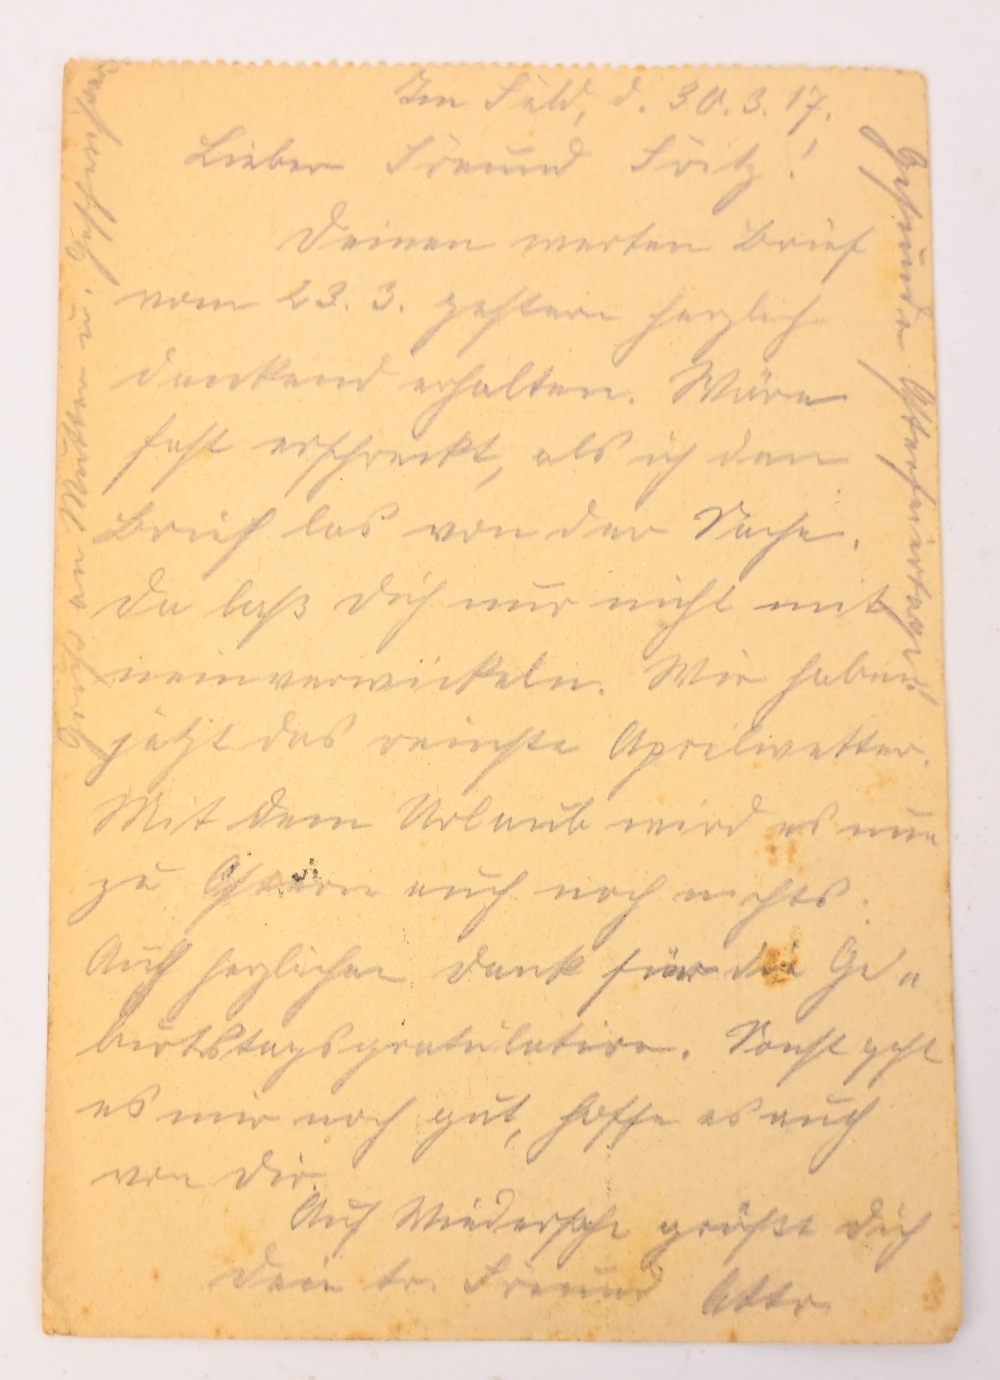 Im Feld, d. 30.3.17.
Lieber Freund Fritz!
Deinen werten Brief
vom 23. 3. gestern herzlich
dankend erhalten. Wäre
fast erschreckt, als ich den
Brief las von der Sache.
Da laß dich nur nicht mit
neinverwickeln. Wir haben
jetzt das reinste Aprilwetter.
Mit dem Urlaub wird es nun
zu Ostern auch noch nichts.
Auch herzlichen Dank für die Ge„
burtstagsgratulation. Sonst geht
es mir noch gut, hoffe es auch
von dir.
Auf Wiedersehn grüßt dich
Dein tr. Freund Otto
Gesunde Osterfeiertage!
Gruß an Mutter u.